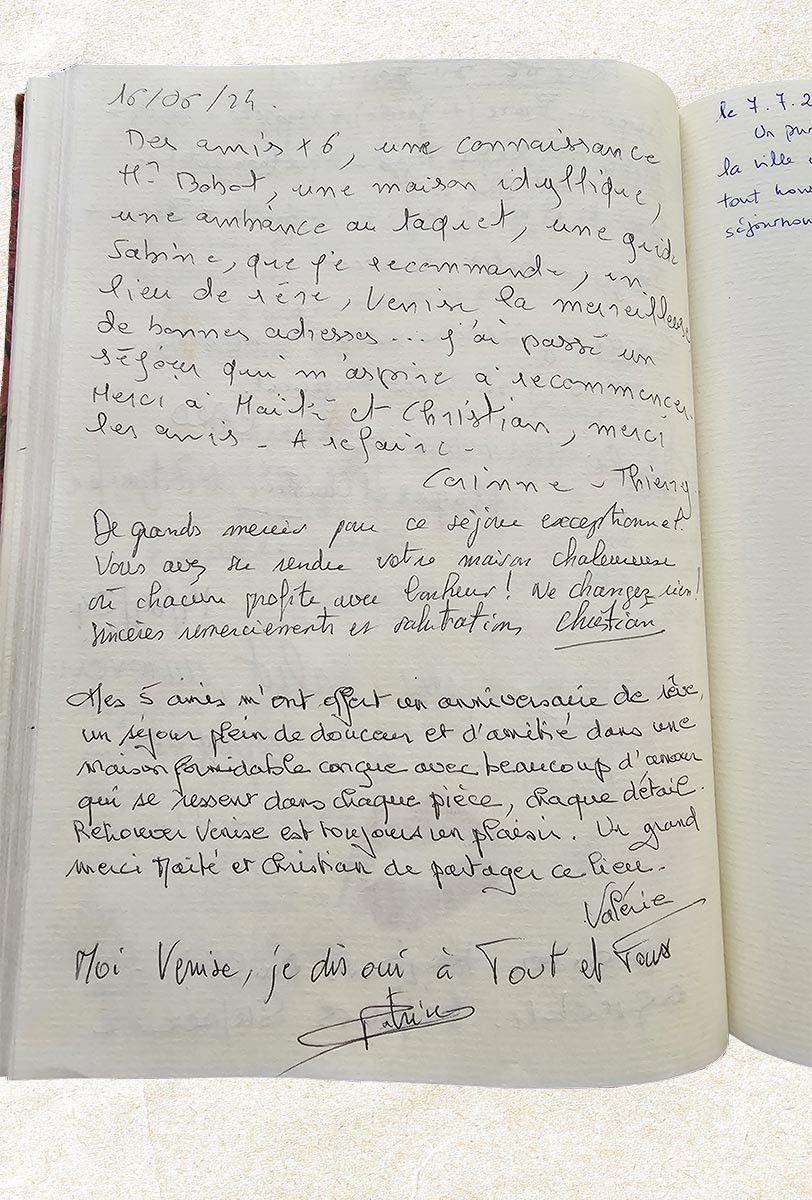 16/06/24.
Des amis x 6, une connaissance
Mr Bobot, une maison idyllique,
une ambiance au taquet, une guide
Sabine, que je recommande, un
lieu de rêve, Venise la merveilleuse
de bonnes adresses... j'ai passé un
séjour qui m'aspire à recommencer.
Merci à Maïté et Christian, merci
les amis - A refaire -
Corinne - Thierry
De grands mercis pour ce séjour exceptionnel.
Vous avez su rendre votre maison chaleureuse
où chacun profite avec bonheur ! Ne changez rien !
Sincères remerciements et salutations Christian
Mes 5 amis m'ont offert un anniversaire de rêve,
un séjour plein de douceur et d'amitié dans une
maison formidable conçue avec beaucoup d'amour
qui se ressent dans chaque pièce, chaque détail.
Retrouver Venise est toujours un plaisir. Un grand
merci Maïté et Christian de partager ce lieu.
Valérie
Moi Venise, je dis oui à Tout et Tous
le 7.7.2
Un pur
la ville
tout